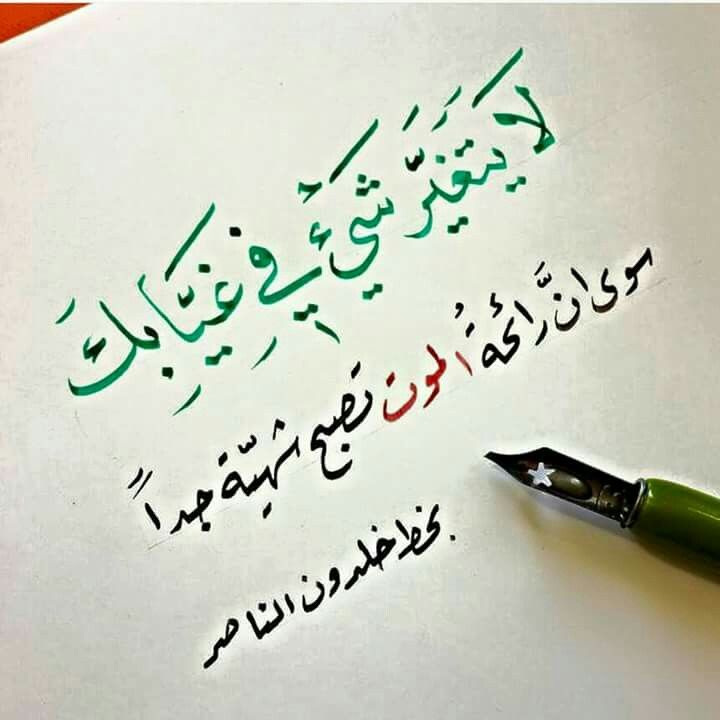 لا يتغيَّر شيئٌ في غيابِكَ
سوى انَّ رائحةُ الموت تصبح شهيّة جداً
بخط خلدون الناصر